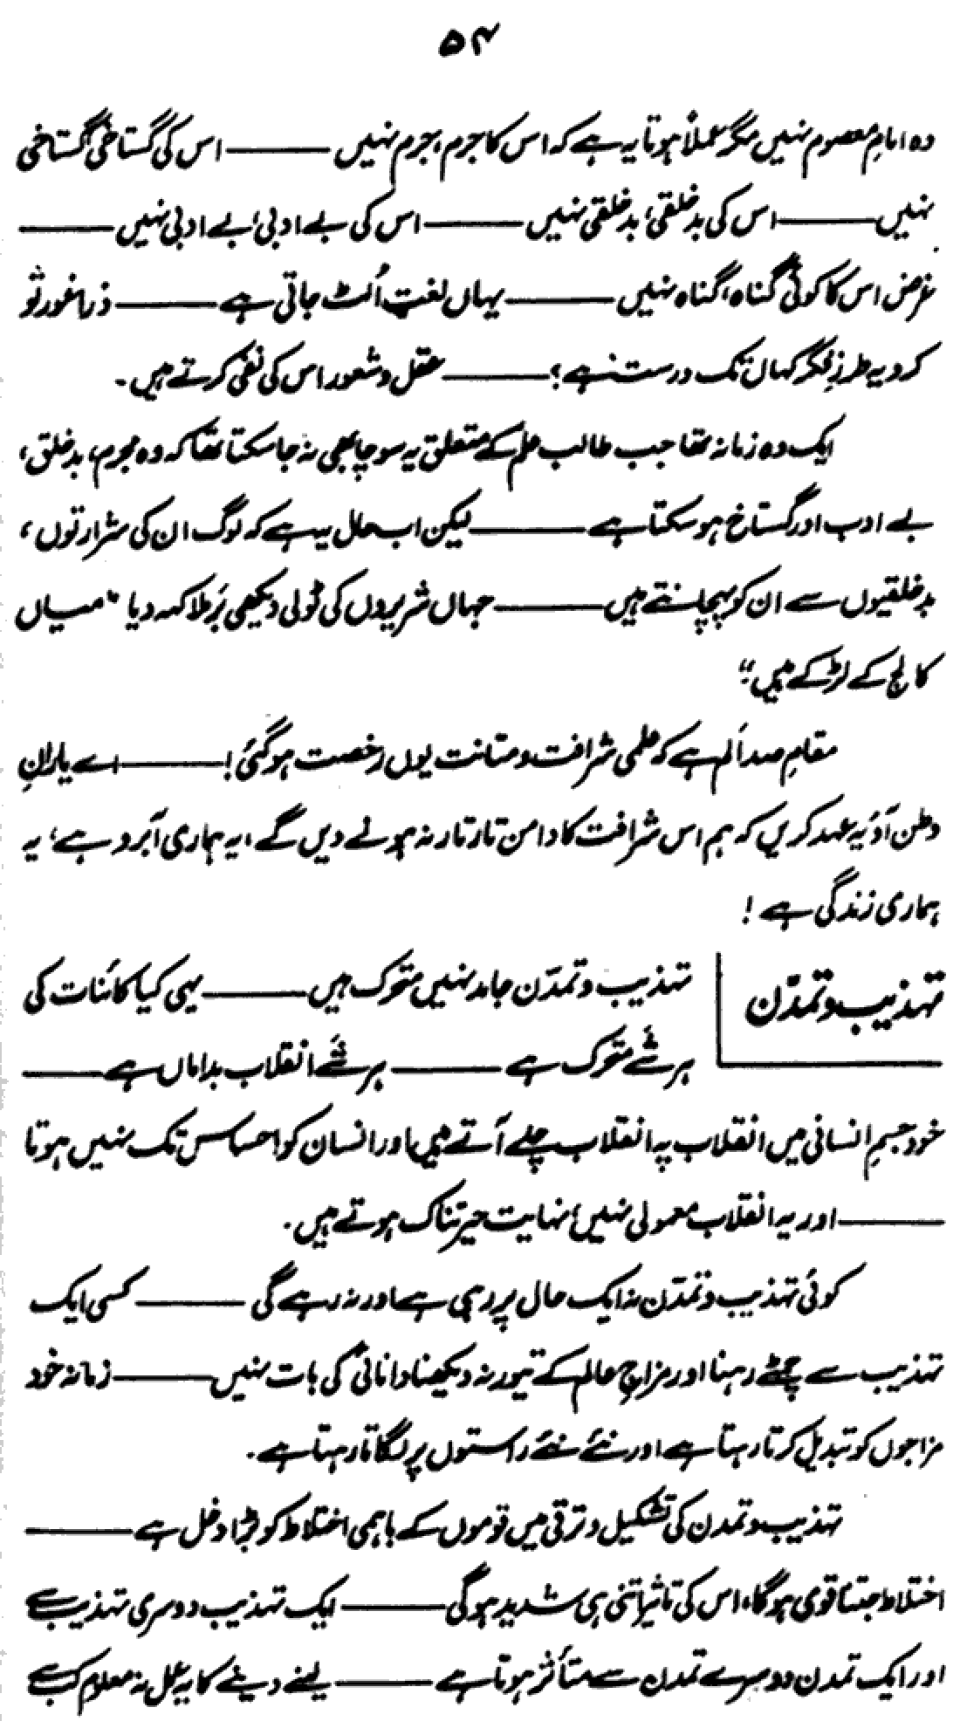 ۵۴
وہ امامِ معصوم نہیں مگر عملاً ہوتا یہ ہے کہ اس کا جرم، جرم نہیں ——— اس کی گستاخی گستاخی
نہیں ——— اس کی بدخلقی، بدخلقی نہیں ——— اس کی بے ادبی، بے ادبی نہیں ———
غرض اس کا کوئی گناہ، گناہ نہیں ——— یہاں لغت اُلٹ جاتی ہے ——— ذرا غور تو
کرو یہ طرزِ فکر کہاں تک درست ہے؟ ——— عقل و شعور اس کی نفی کرتے ہیں۔
ایک وہ زمانہ تھا جب طالب علم کے متعلق یہ سوچا بھی نہ جا سکتا تھا کہ وہ مجرم، بدخلق،
بے ادب اور گستاخ ہو سکتا ہے ——— لیکن اب حال یہ ہے کہ لوگ ان کی شرارتوں،
بدخلقیوں سے ان کو پہچانتے ہیں ——— جہاں شریروں کی ٹولی دیکھی بَرملا کہہ دیا "میاں
کالج کے لڑکے ہیں"
مقامِ صد اَلم ہے کہ علمی شرافت و متانت یوں رخصت ہو گئی! ——— اے یارانِ
وطن آؤ یہ عہد کریں کہ ہم اس شرافت کا دامن تار تار نہ ہونے دیں گے، یہ ہماری آبرو ہے، یہ
ہماری زندگی ہے!
تہذیب و تمدّن
تہذیب و تمدّن جامد نہیں متحرک ہیں ——— یہی کیا کائنات کی
ہر شَے متحرک ہے ——— ہر شَے انقلاب بداماں ہے ———
خود جسمِ انسانی میں انقلاب پہ انقلاب چلے آتے ہیں اور انسان کو احساس تک نہیں ہوتا
——— اور یہ انقلاب معمولی نہیں، نہایت حیرتناک ہوتے ہیں۔
کوئی تہذیب و تمدّن نہ ایک حال پر رہی ہے اور نہ رہے گی ——— کسی ایک
تہذیب سے چمٹے رہنا اور مزاجِ عالم کے تیور نہ دیکھنا دانائی کی بات نہیں ——— زمانہ خود
مزاجوں کو تبدیل کرتا رہتا ہے اور نئے نئے راستوں پر لگاتا رہتا ہے۔
تہذیب و تمدن کی تشکیل و ترقی میں قوموں کے باہمی اختلاط کو بڑا دخل ہے ———
اختلاط جتنا قوی ہو گا، اس کی تاثیر اتنی ہی شدید ہو گی ——— ایک تہذیب دوسری تہذیب سے
اور ایک تمدن دوسرے تمدن سے متأثر ہوتا ہے ——— لینے دینے کا یہ عمل نہ معلوم کب سے